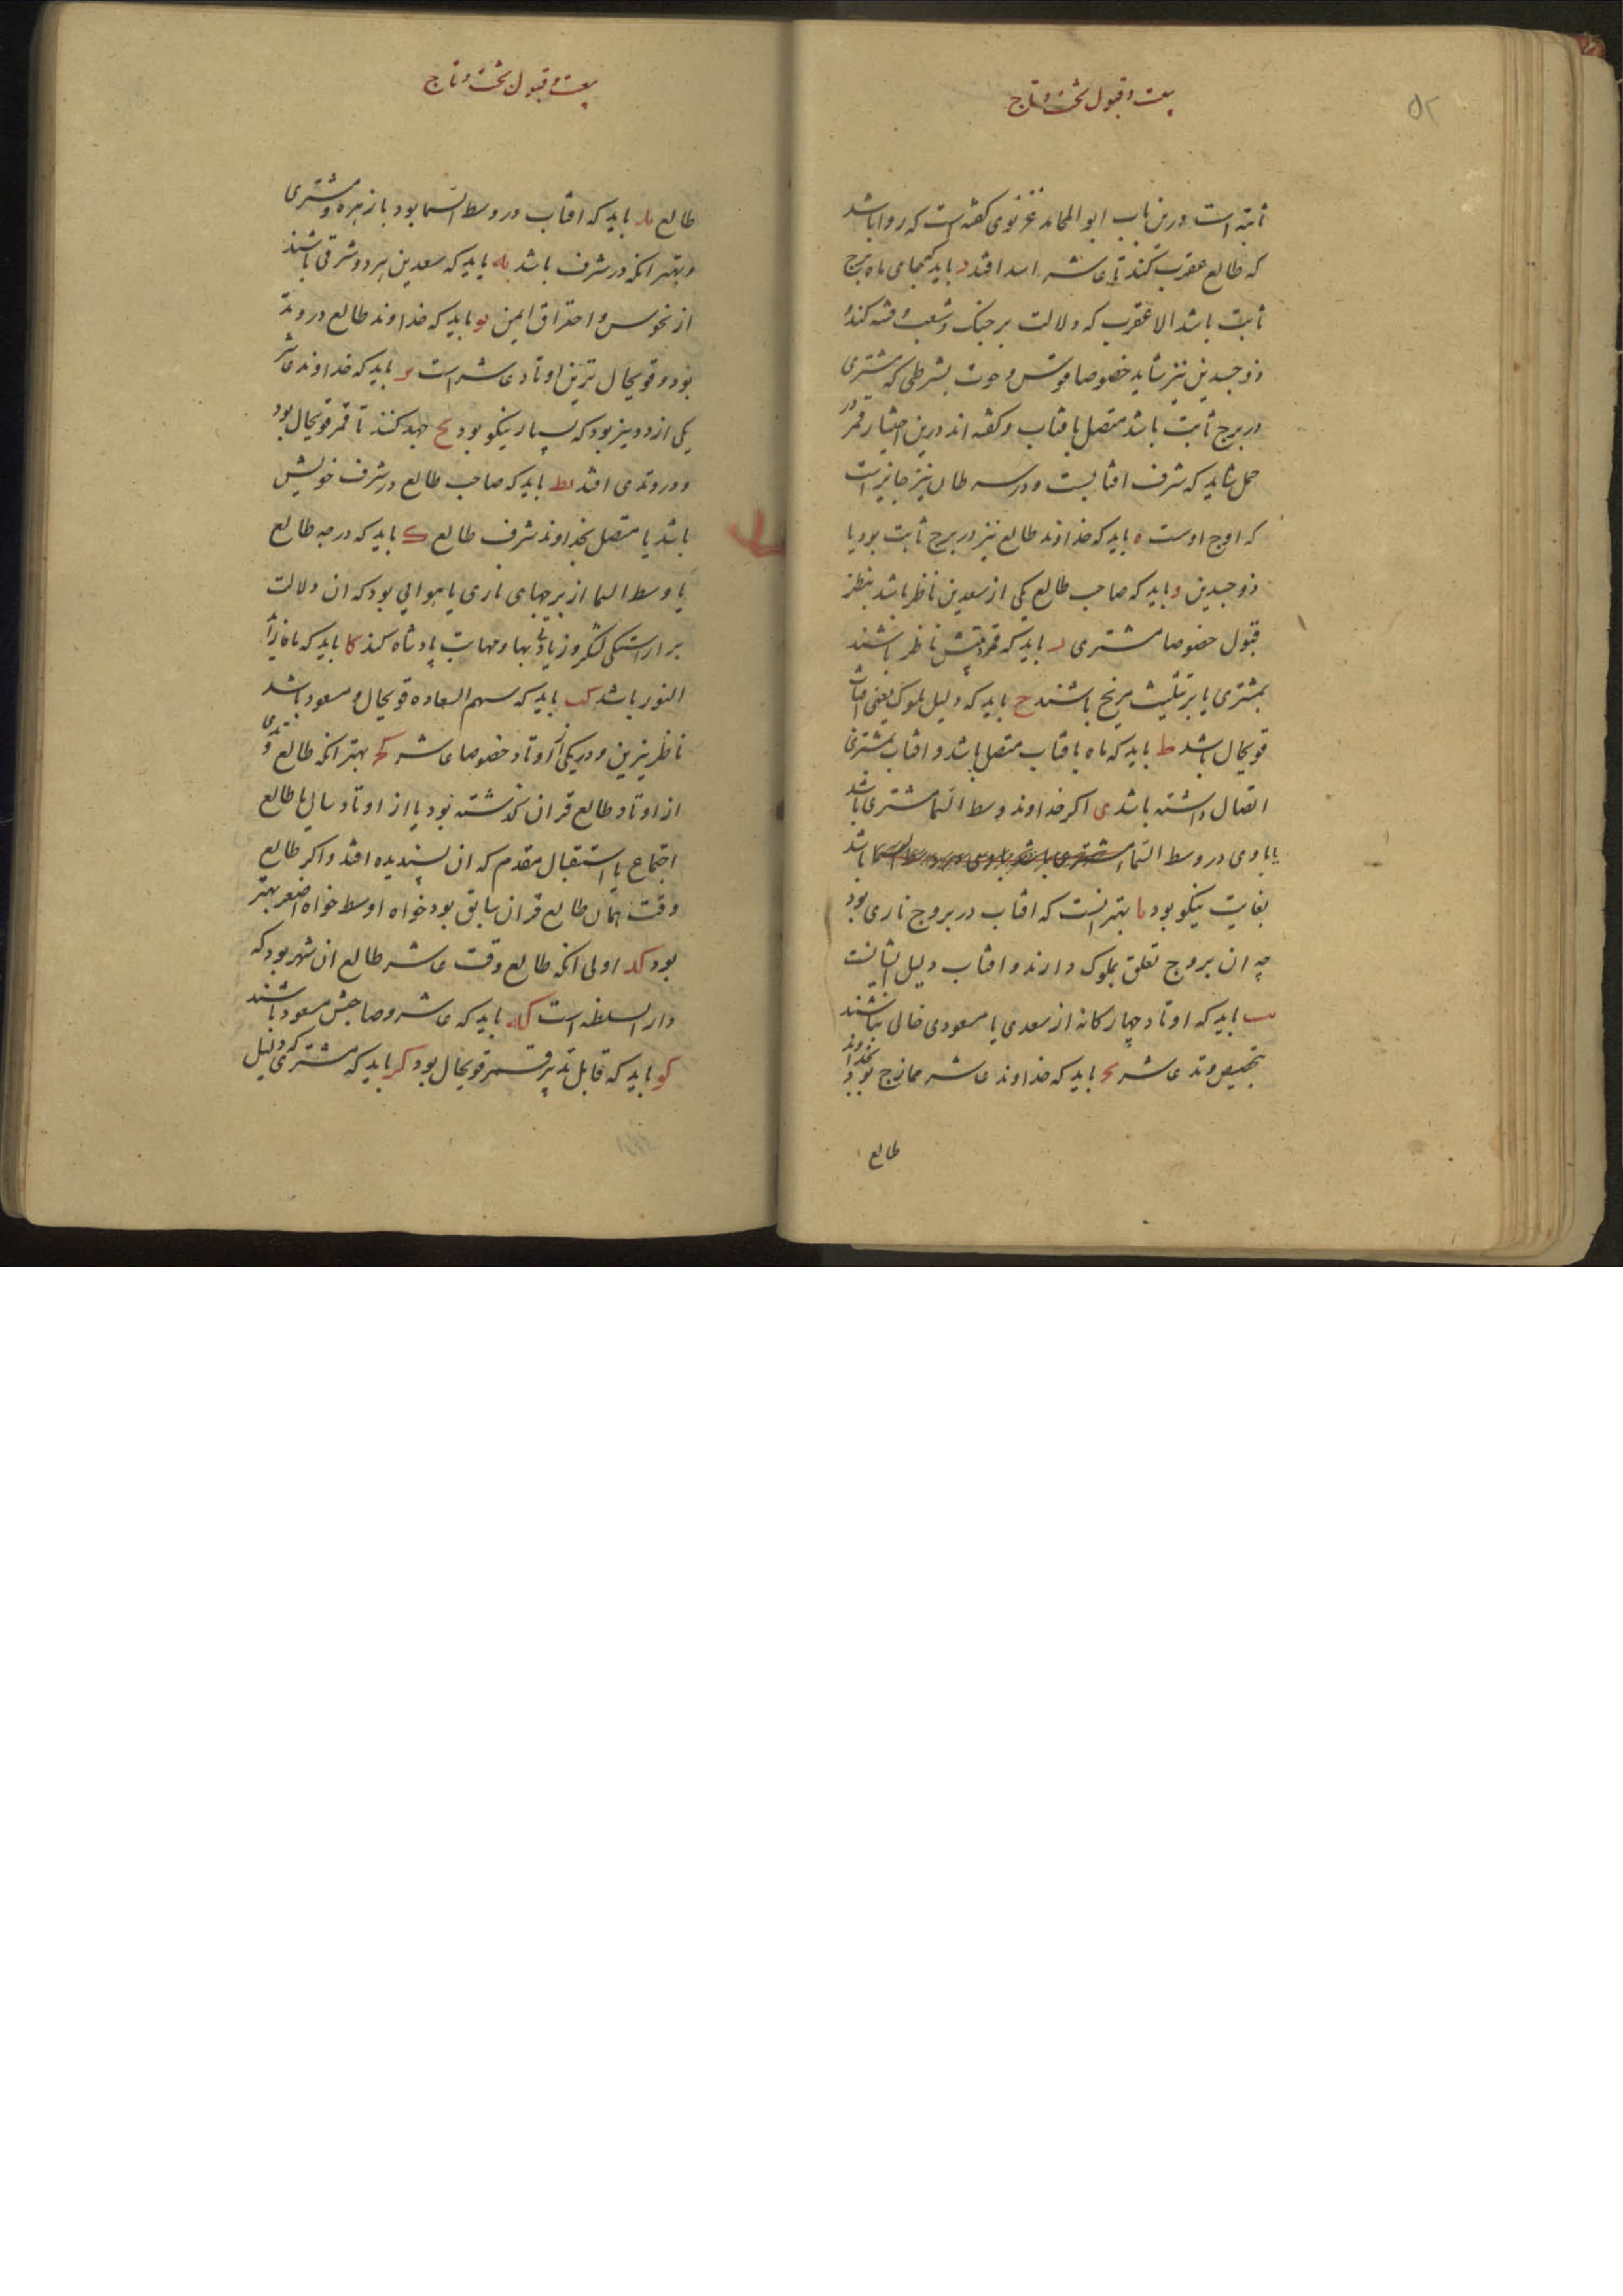 ۵۲
بیعت و قبول تخت و تاج
ثابته است درین باب ابو المحامد غزنوی کفته است که روا باشد
که طالع عقرب کنند تا عاشر اسد افتد د باید که جای ماه برج
ثابت باشد الا عقرب که دلالت بر جنک و شعب و فتنه کند و
ذو جسدین نیز شاید خصوصا قوس و حوت بشرطی که مشتری
در برج ثابت باشد متصل بافتاب و کفته اند درین اختیار قمر در
حمل شاید که شرف افتابست و در سرطان نیز جایز است
که اوج اوست ه باید که خداوند طالع نیز در برج ثابت بود یا
ذو جسدین و باید که صاحب طالع یکی از سعدین ناظر باشد بنظر
قبول خصوصا مشتری ر باید که قمر ناظر باشند
بمشتری یا بر تثلیث مریخ باشند ح باید که دلیل ملوک یعنی افتاب
قویحال باشد ط باید که ماه بافتاب متصل باشد و افتاب بمشتری
اتصال داشته باشد ی اکر خداوند وسط السما مشتری باشد
یا با وی در وسط السما باشد
بغایت نیکو بود یا بهتر انست که افتاب در بروج ناری بود
چه ان بروج تعلق بملوک دارند و افتاب دلیل ایشانست
یب باید که اوتاد چهارکانه از سعدی یا مسعودی خالی نباشند
بتخصیص وتد عاشر یح باید که خداوند عاشر ممازج بود بخداوند
طالع
بیعت و قبول تخت و تاج
طالع ید باید که افتاب در وسط السما بود با زهره و مشتری
و بهتر انکه در شرف باشد یه باید که سعدین هر دو شرقی باشند
از نحوس و احتراق ایمن یو باید که خداوند طالع در وتد
بود و قویحال ترین اوتاد عاشر است یر باید که خداوند عاشر
یکی از دو نیر بود که بسیار نیکو بود یح جهد کنند تا قمر قویحال بود
و در وتدی افتد یط باید که صاحب طالع در شرف خویش
باشد یا متصل بخداوند شرف طالع ک باید که درجه طالع
یا وسط السما از برجهای ناری یا هوایی بود که ان دلالت
بر اراستکی لشکر و زیادتی بها و مهابت پادشاه کند کا باید که ماه زاید
النور باشد کب باید که سهم السعاده قویحال و مسعود باشد
ناظر بنیرین و در یکی از اوتاد خصوصا عاشر کح بهتر انکه طالع وتدی
از اوتاد طالع قران کذشته بود یا از اوتاد سال یا طالع
اجتماع یا استقبال مقدم که ان پسندیده افتد و اکر طالع
وقت همان طالع قران سابق بود خواه اوسط خواه اصغر بهتر
بود کد اولی انکه طالع وقت عاشر طالع ان شهر بود که
دار السلطنه است که باید که عاشر و صاحبش مسعود باشند
کو باید که قابل تدبیر قمر قویحال بود کر باید که مشتری که دلیل